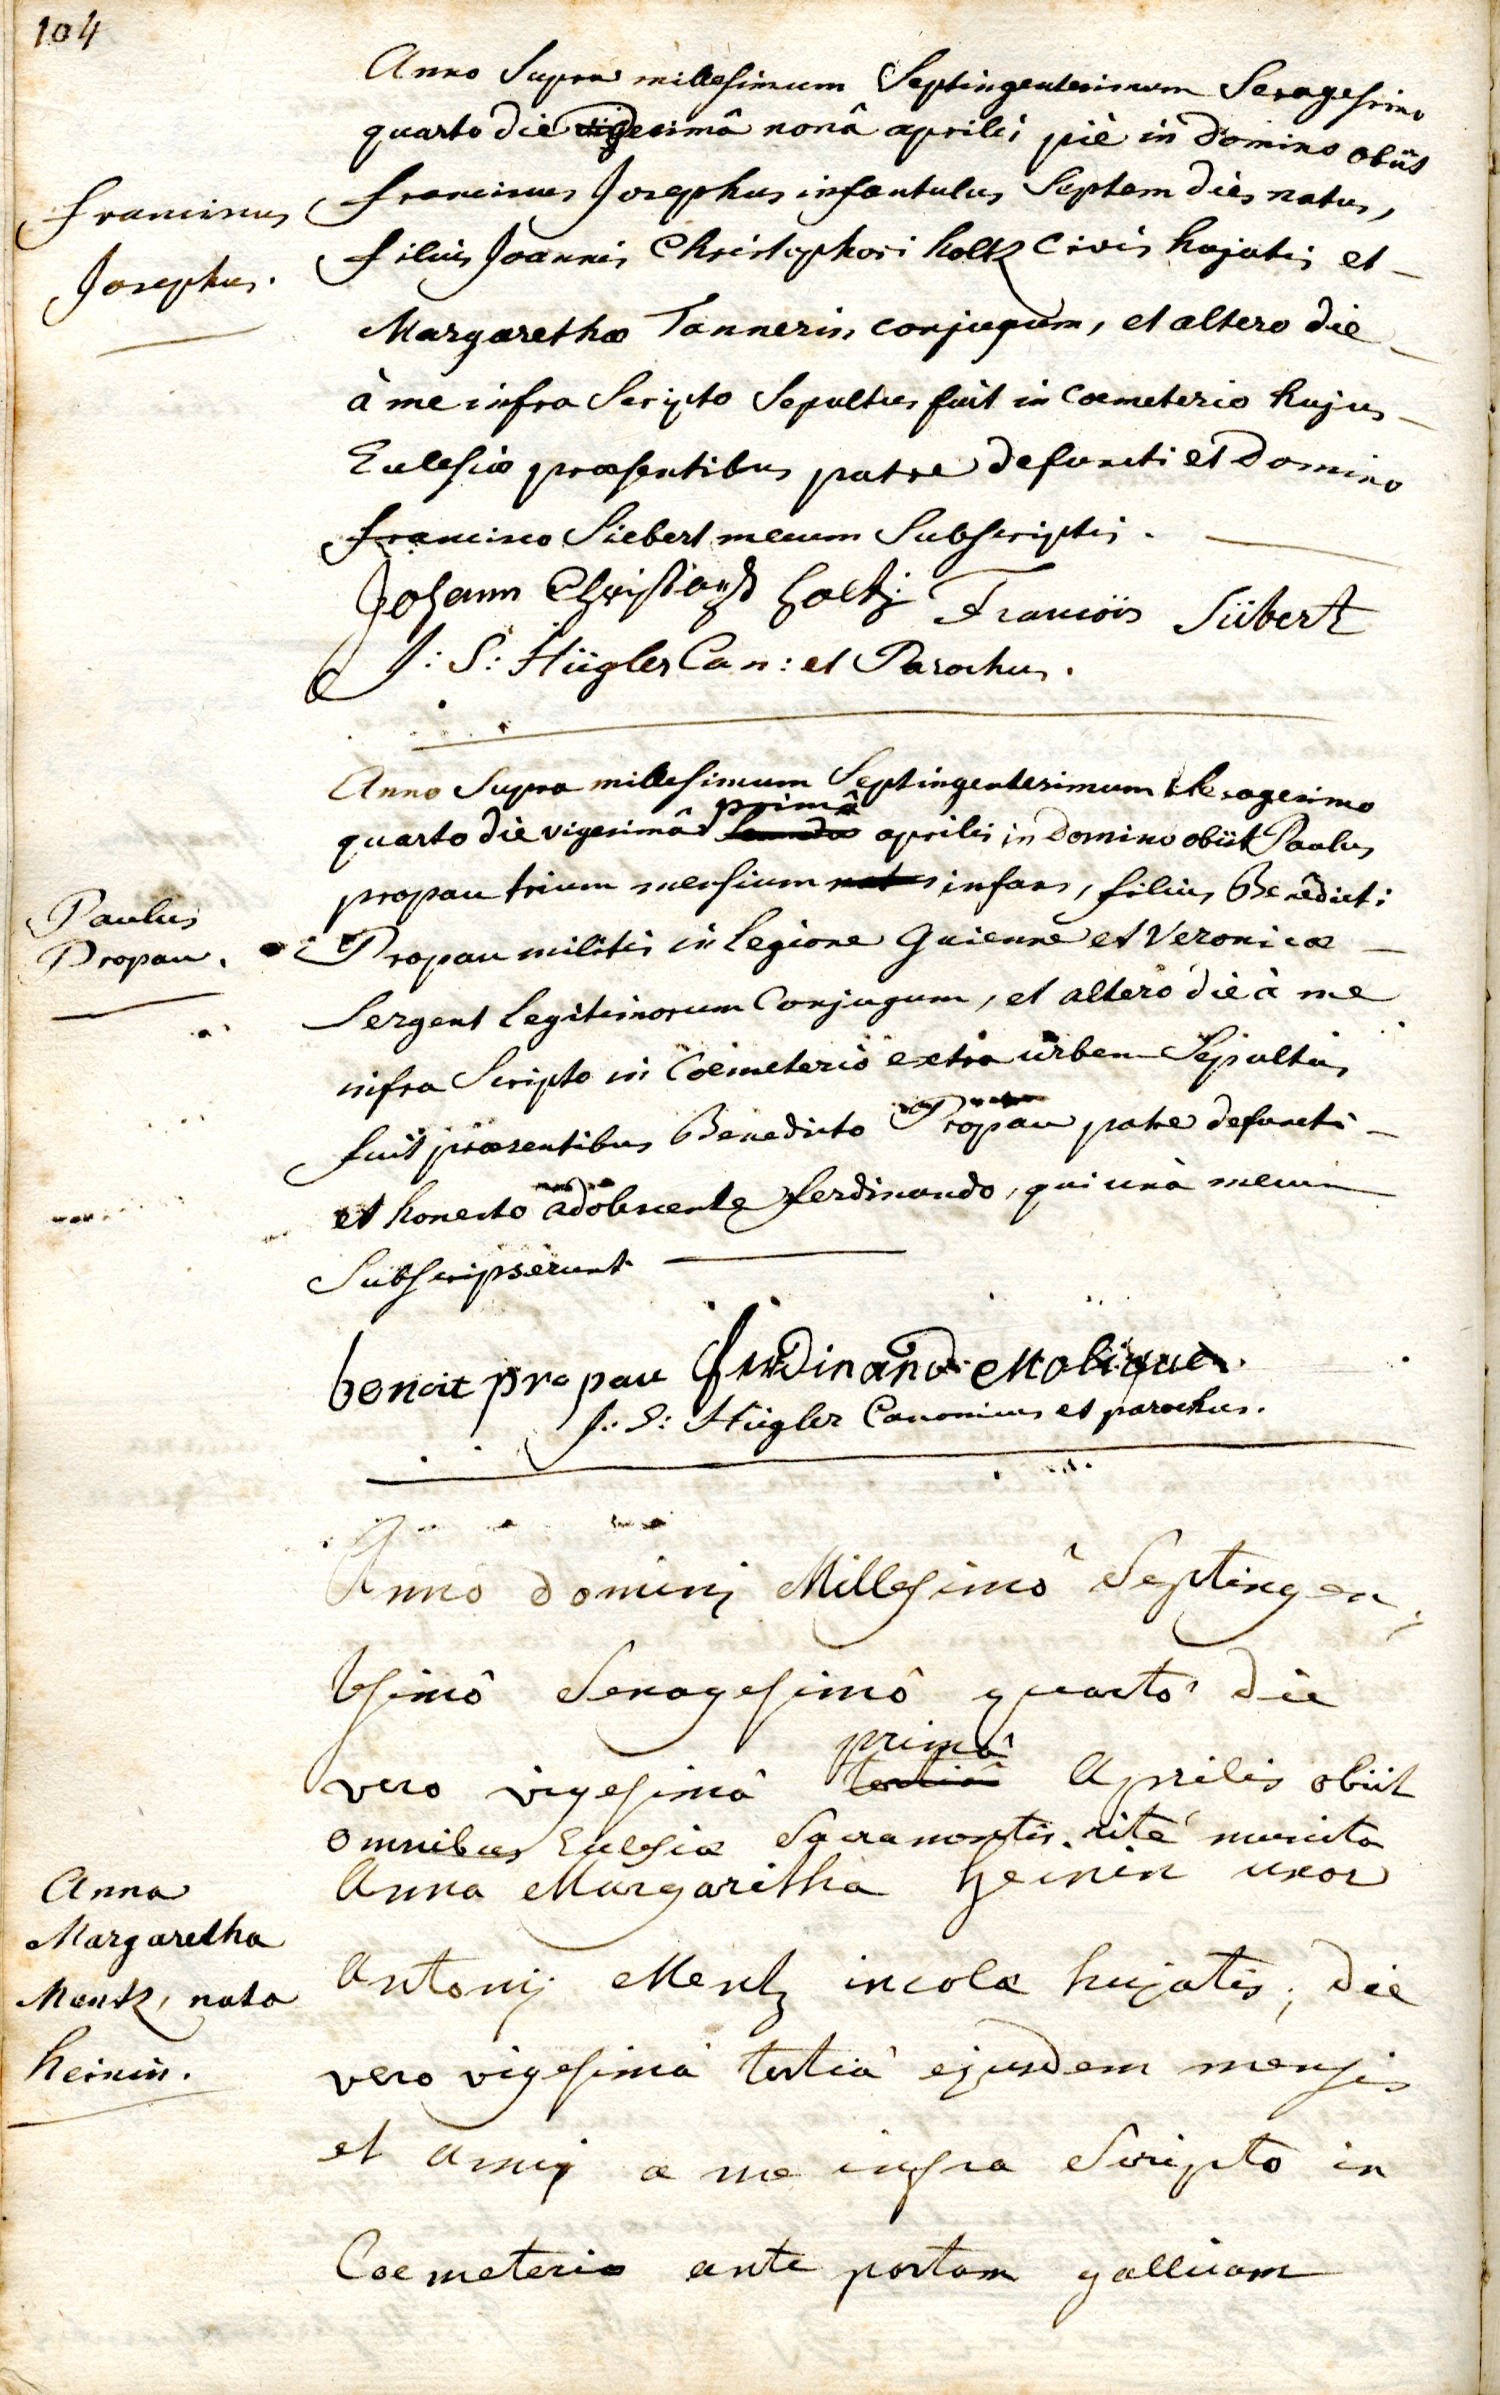 104
Anno Supra millesimum Septingentesimum Sexagesimo
quarto die decimâ nonâ aprilis piè in Domino obiit
franciscus Josephus infantulus Septem dies natus,
filius Joannis Christophori holtz Civis hujatis et
Margarethæ Tannerin conjugum, et altero die
à me infra Scripto Sepultus fuit in Coemeterio hujus
Ecclesiæ præsentibus patre defuncti et Domino
francisco Siebert mecum Subscriptis.
franciscus
Josephus.
Johann Holtz François Siibert
J: S: Hügler Can: et Parochus.
Anno Supra millesimum Septingentesimum Sexagesimo
quarto die vigesimâ primâ aprilis in Domino obiit Paulus
propau trium mensium infans, filius Benedicti
Propau militis in Legione Guienne et Veronicæ
Sergent Legitimorum Conjugum, et altero die à me
infra Scripto in Coemeterio extra urbem Sepultus
fuit præsentibus Benedicto Propau patre defuncti
et honesto adolescente ferdinando, qui unà mecum
Subscripserunt
Paulus
Propau.
benoit propau ferdinand
J: S: Hügler Canonicus et parochus.
Anno domini Millesimô Septingen
tesimô Sexagesimô quarto die
vero vigesimâ primâ Aprilis obiit
omnibus Ecclesiæ Sacramentis rité munita
Anna Margaritha heinin uxor
Antonij Mentz incolæ hujatis, die
vero vigesimâ tertiâ ejusdem mensis
et anni a me infra Scripto in
Coemeterio ante portam gallicam
Anna
Margaretha
Mentz, nata
heinin.